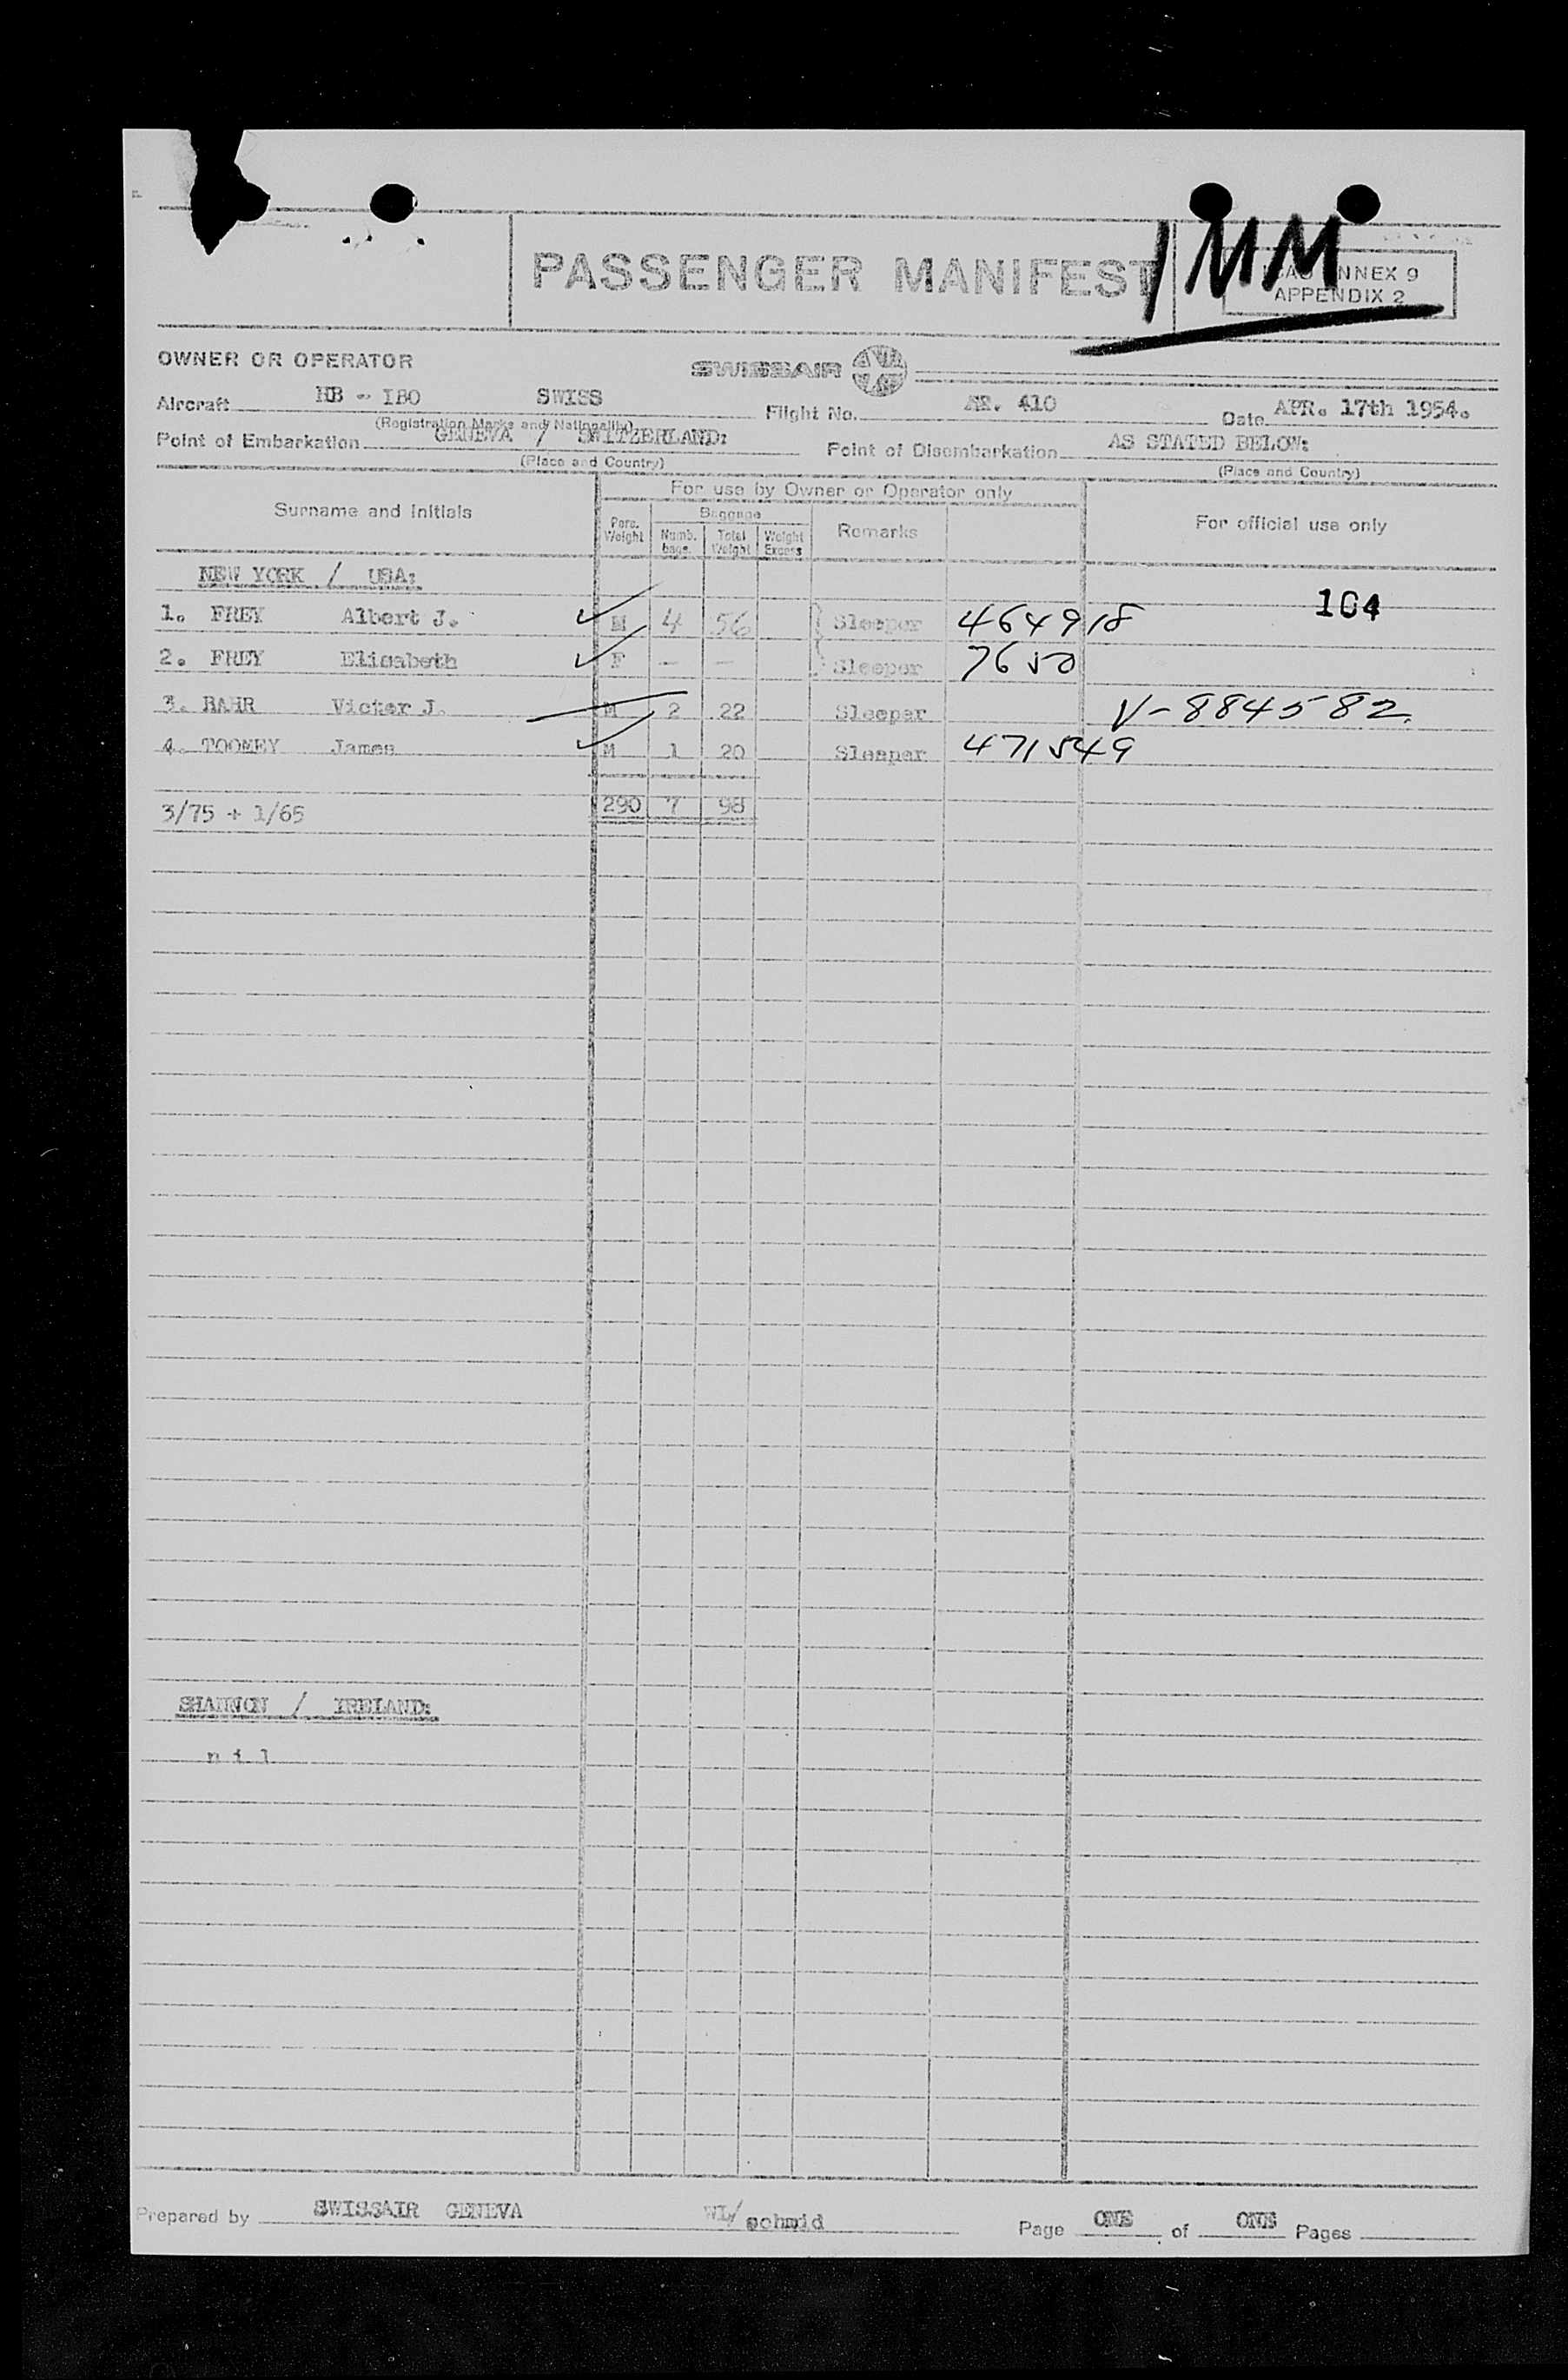 PASSENGER MANIFEST
1 MM
ANNEX 9
APPENDIX 2
OWNER OR OPERATOR SWISSAIR
Aircraft HB - IBO SWISS Flight No. SR. 410 Date APR. 17th 1954.
(Registration Marks and Nationality)
Point of Embarkation GENEVA / SWITZERLAND: Point of Disembarkation AS STATED BELOW:
(Place and Country) (Place and Country)
For use by Owner or Operator only
Surname and Initials Pers. Weight Baggage Numb. bags. Total Weight Weight Excess Remarks For official use only
NEW YORK / USA:
104
1. FREY Albert J. M 4 56 Sleeper 464918
2. FREY Elisabeth F - - Sleeper 7650
3. BAHR Victor J. M 2 22 Sleeper V-884582.
4. TOOMEY James M 1 20 Sleeper 471549
3/75 + 1/65 290 7 98
SHANNON / IRELAND:
n i l
Prepared by SWISSAIR GENEVA WL/ schmid Page ONE of ONE Pages